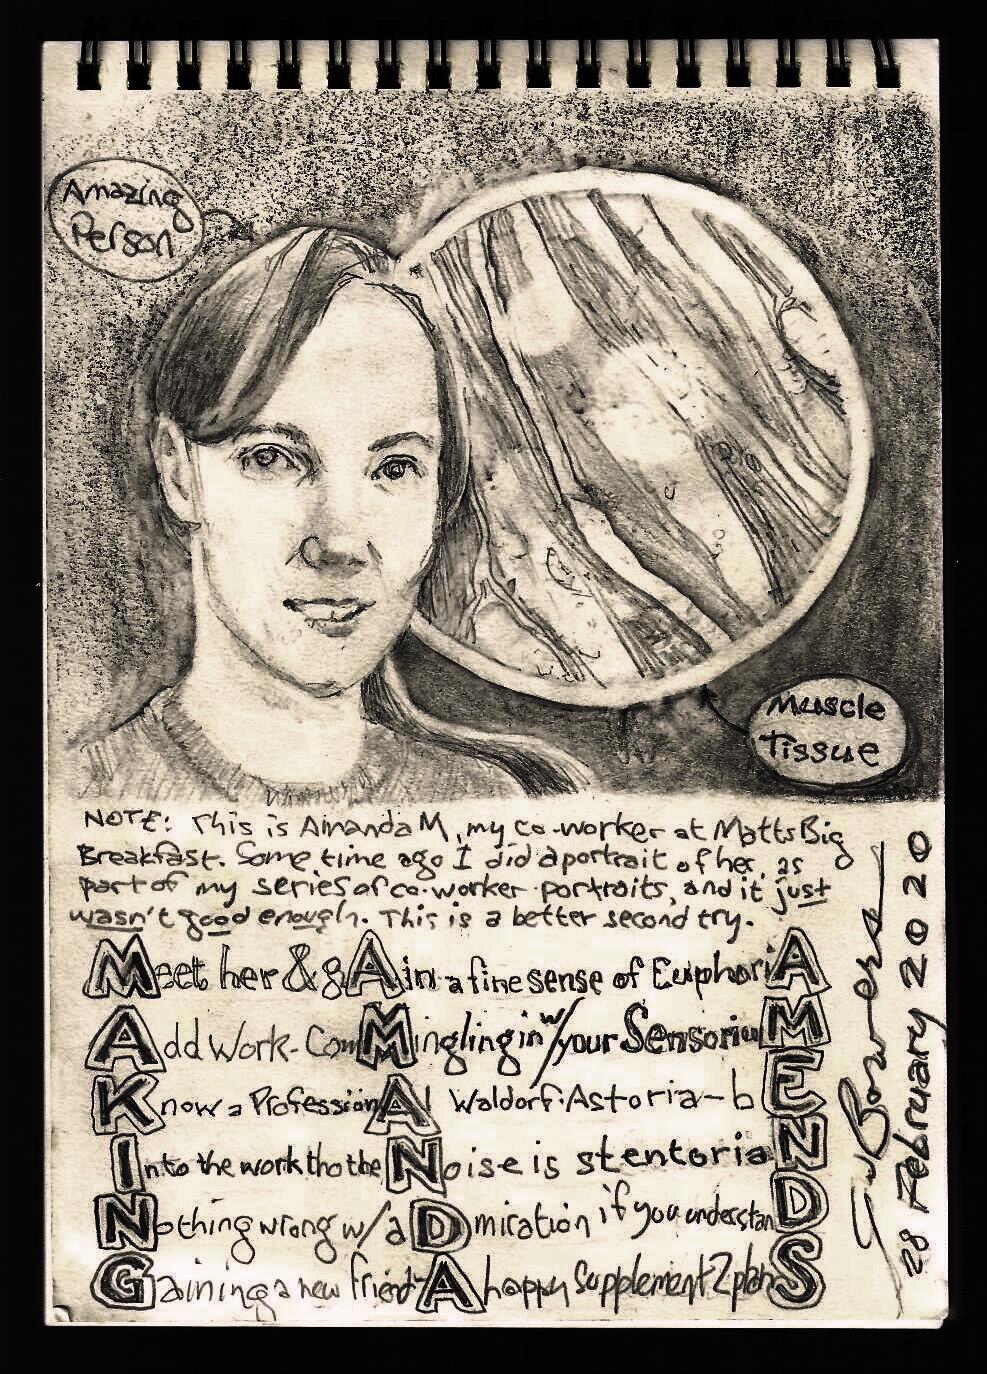 Amazing
Person
Muscle
Tissue
NOTE: This is Amanda M, my co-worker at Matts Big
Breakfast. Some time ago I did a portrait of her, as
part of my series of co-worker portraits, and it just
wasn't good enough. This is a better second try.
Meet her & gAin a fine sense of EuphoriA
Add Work-ComMingling in w/ your SensoriuM
Know a ProfessionAl Waldorf-Astoria-bE
Into the work tho the Noise is stentoriaN
Nothing wrong w/ aDmiration if you understanD
Gaining a new friend-A happy supplement 2 planS
28 February 2020